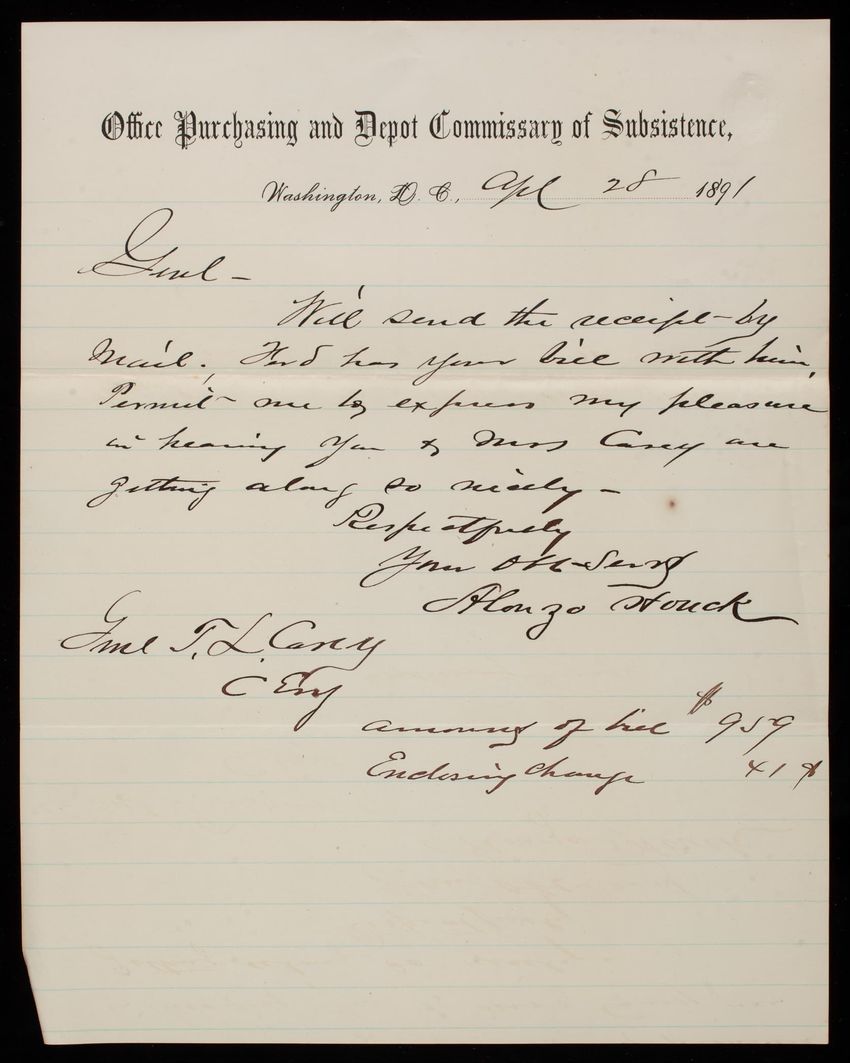 Office Purchasing and Depot Commissary of Subsistence,
Washington, D. C., Apl 28 1891
Genl -
Will send the receipt - by
Mail., Ford has your bill with him,
Permit me to express my pleasure
in hearing you & Mrs Casey are
getting along so nicely -
Respectfully
Your Obt Servt
Alonzo Houck
Genl T. L. Casey
C Eng
amount of bill $ 9 59
Enclosing change 41 ¢